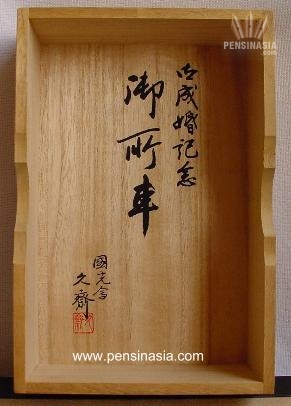 PENSINASIA
御成婚記念
御所車
國光會
久齋
www.pensinasia.com